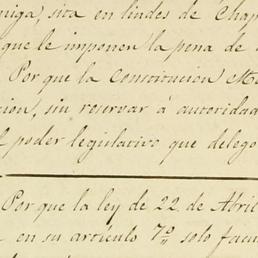 niga, sita en lindes de Chap
que le imponen la pena de
Por que la Constitucion M
cion, sin reservar á autoridad
l poder legislativo que delego
Por que la ley de 22 de Abri
en su artículo 7º solo facu